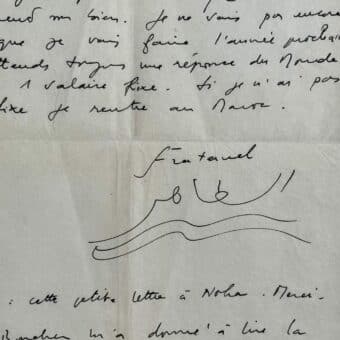 rend mon bien. Je ne sais pas encore
que je vais faire l'année prochai
ttends toujours une réponse du Monde
1 salaire fixe. Si je n'ai pas
fixe je rentre au Maroc.
Fraternel
الطاهر
: cette petite lettre à Noha. Merci.
m'a donné à lire la